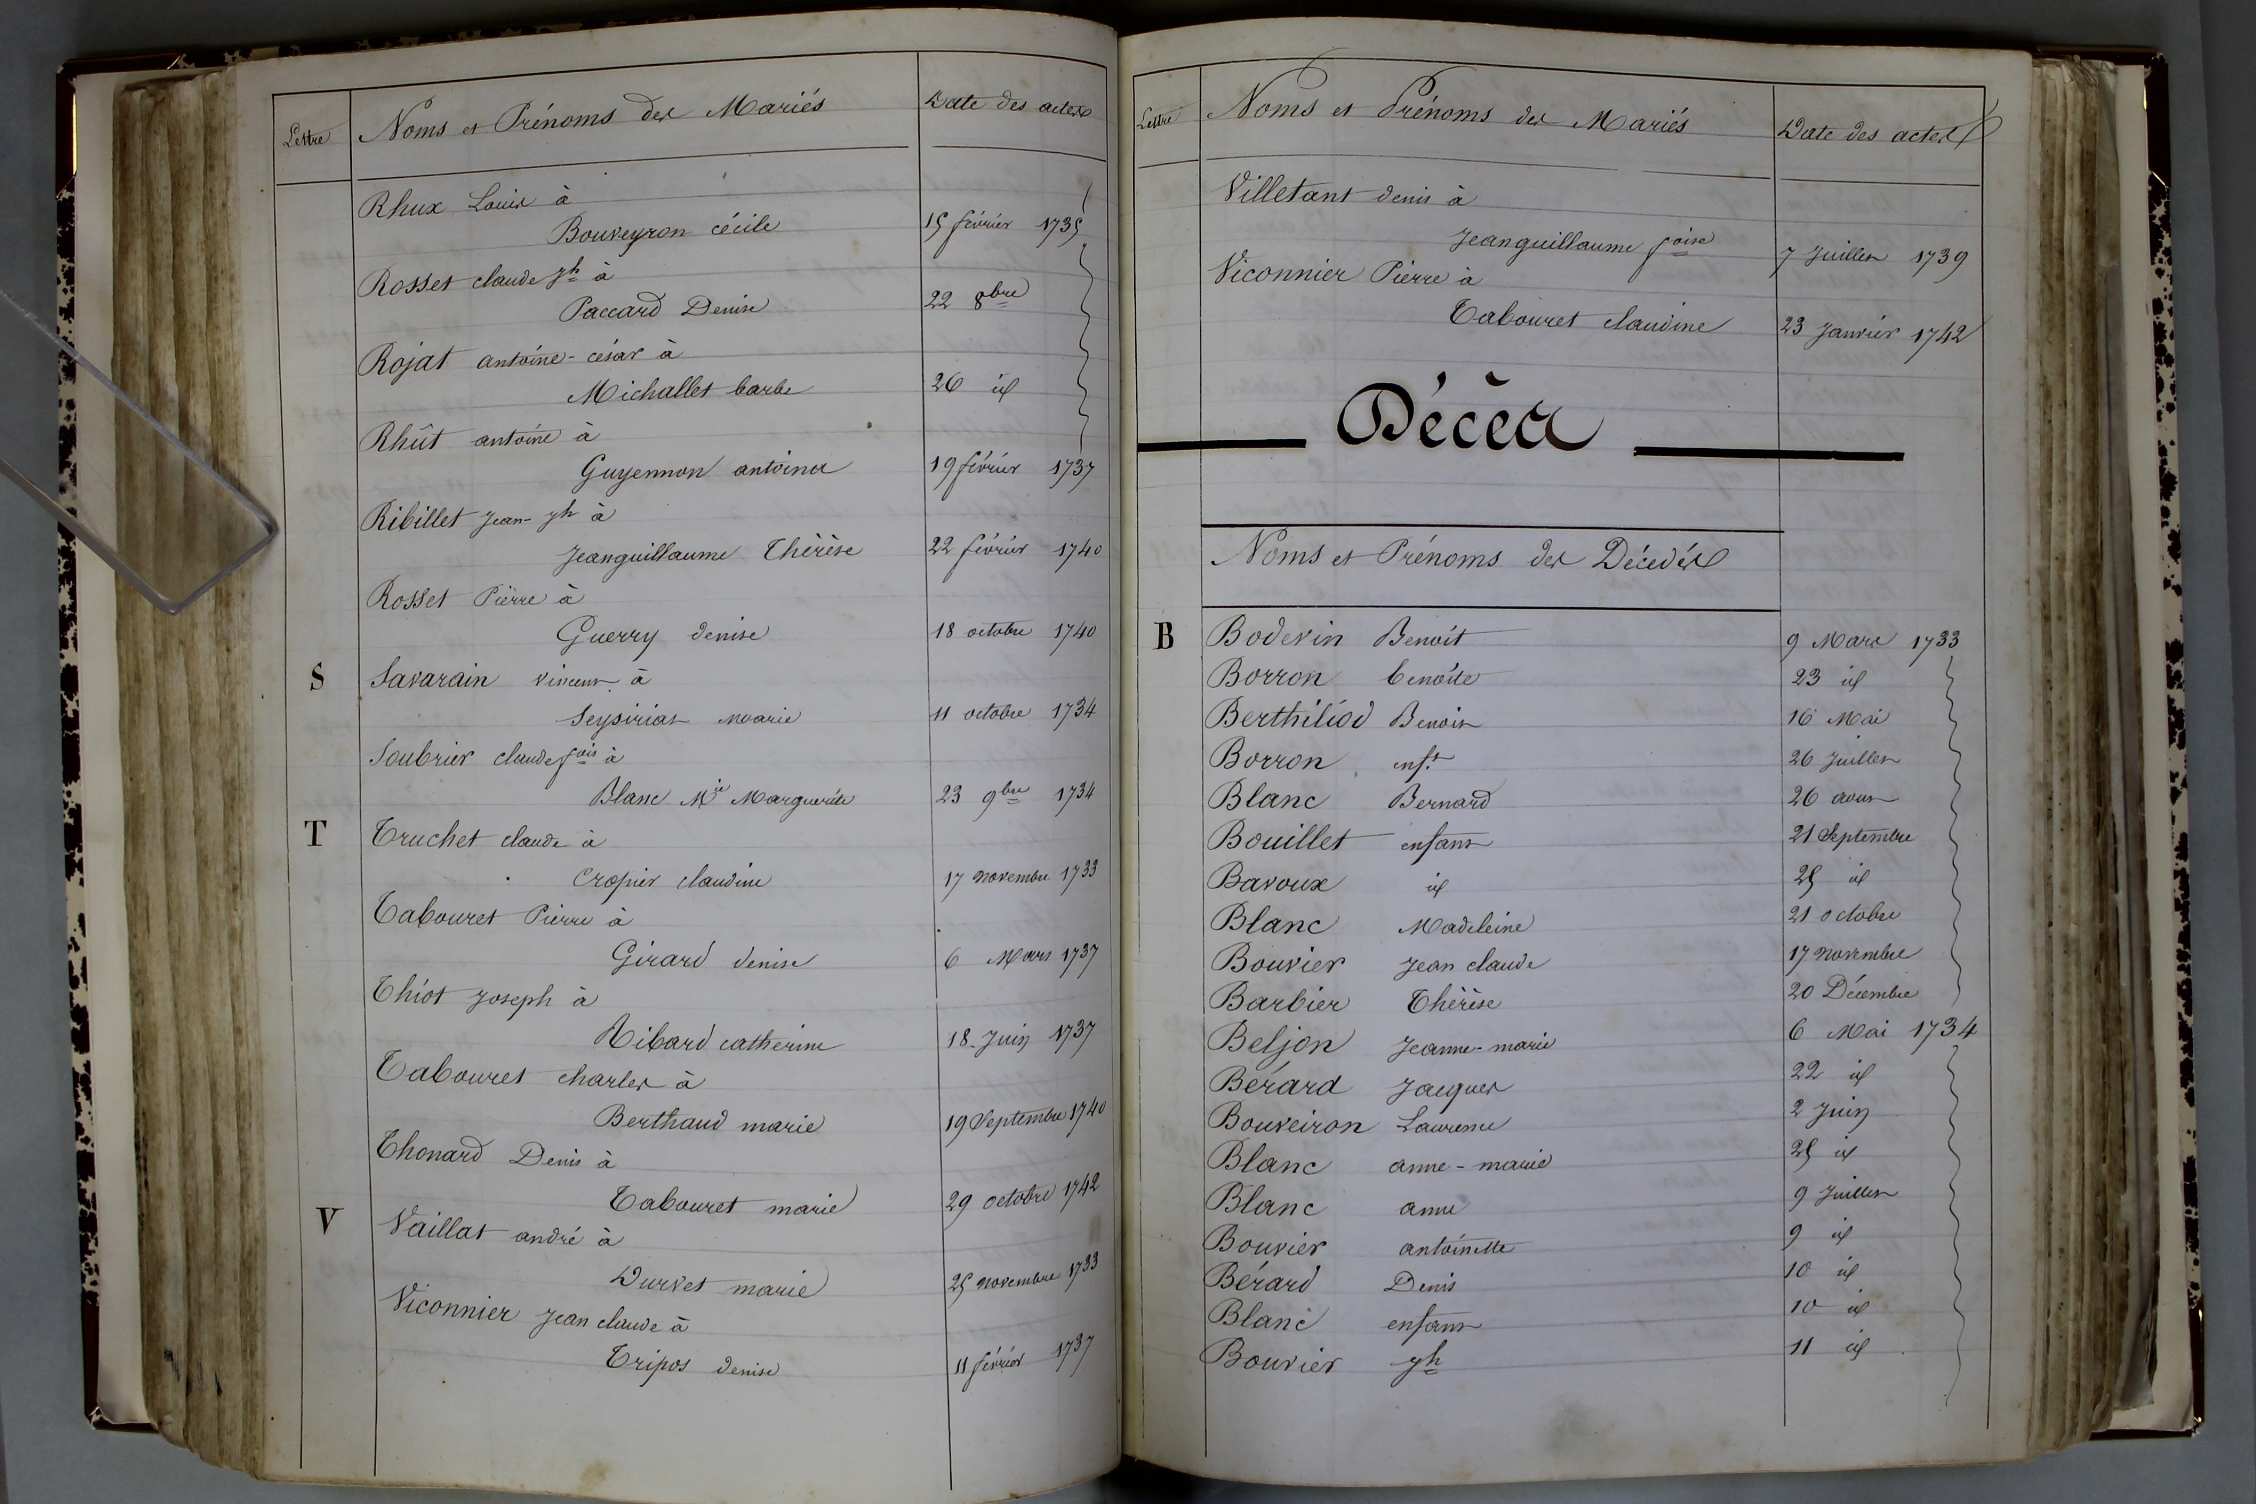 Lettre Noms et Prénoms des Mariés Date des actes
Rhux Louis à
Bouveyron cécile 15 février 1735
Rosset claude jh à
Paccard Denise 22 8bre
Rojat antoine-césar à
Michallet barbe 26 id
Rhût antoine à
Guyennon antoina 19 février 1737
Ribillet Jean-jh à
Jeanguillaume Thérèse 22 février 1740
Rosset Pierre à
Guerry denise 18 octobre 1740
S Savarain vincent à
Seysiriat marie 11 octobre 1734
Soubrier claude fois à
Blanc Mie Marguerite 23 9bre 1734
T Truchet claude à
Cropier claudine 17 novembre 1733
Tabouret Pierre à
Girard denise 6 Mars 1737
Thiot Joseph à
Ribard catherine 18 Juin 1737
Tabouret charles à
Berthaud marie 19 Septembre 1740
Thonard Denis à
Tabouret marie 29 octobre 1742
V Vaillat andré à
Durvet marie 25 novembre 1733
Viconnier Jean claude à
Tripos denise 11 février 1737
Lettre Noms et Prénoms des Mariés Date des actes
Villetant denis à
Jeanguillaume foise 7 Juillet 1739
Viconnier Pierre à
Tabouret claudine 23 Janvier 1742
Décès
Noms et Prénoms des Décédés
B Bodevin Benoît 9 Mars 1733
Borron benoîte 23 id
Berthiliod Benoit 16 Mai
Borron enft 26 Juillet
Blanc Bernard 26 aout
Bouillet enfant 21 Septembre
Bavoux id 25 id
Blanc Madeleine 21 octobre
Bouvier Jean claude 17 novembre
Barbier Thérèse 20 Décembre
Beljon Jeanne-marie 6 Mai 1734
Bérard Jacques 22 id
Bouveiron Laurence 2 Juin
Blanc anne-marie 25 id
Blanc anne 9 Juillet
Bouvier antoinette 9 id
Bérard Denis 10 id
Blanc enfant 10 id
Bouvier jh 11 id